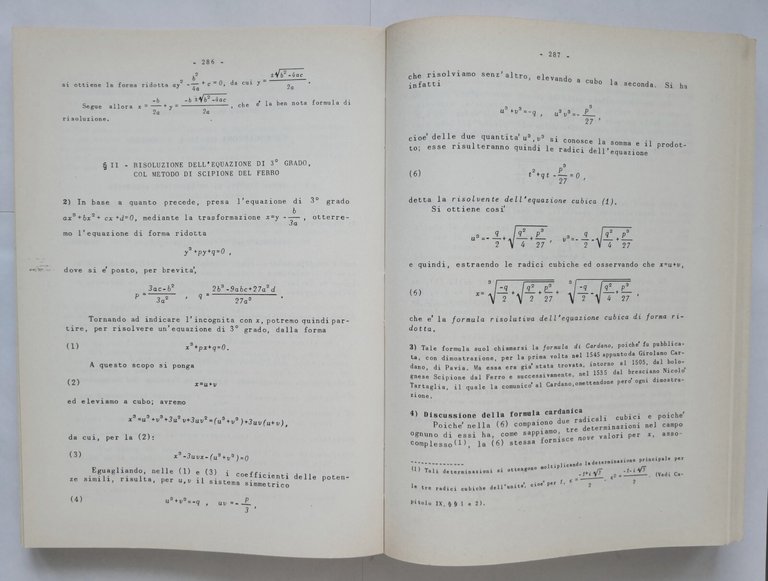 - 286 -
si ottiene la forma ridotta ay² - b²/4a + c=0, da cui y = ±√b²-4ac / 2a .
Segue allora x = -b/2a + y = -b ±√b²-4ac / 2a , che e' la ben nota formula di
risoluzione.
§ II - RISOLUZIONE DELL'EQUAZIONE DI 3° GRADO,
COL METODO DI SCIPIONE DEL FERRO
2) In base a quanto precede, presa l'equazione di 3° grado
ax³+bx²+ cx +d=0, mediante la trasformazione x=y - b/3a , otterre-
mo l'equazione di forma ridotta
y³+py+q=0 ,
dove si e' posto, per brevita',
p = 3ac-b²/3a² , q = 2b³-9abc+27a²d/27a³ .
Tornando ad indicare l'incognita con x, potremo quindi par-
tire, per risolvere un'equazione di 3° grado, dalla forma
(1) x³+px+q=0.
A questo scopo si ponga
(2) x=u+v
ed eleviamo a cubo; avremo
x³=u³+v³+3u²v+3uv²=(u³+v³)+3uv(u+v),
da cui, per la (2):
(3) x³-3uvx-(u³+v³)=0
Eguagliando, nelle (1) e (3) i coefficienti delle poten-
ze simili, risulta, per u,v il sistema simmetrico
(4) u³+v³=-q , uv =- p/3 ,
- 287 -
che risolviamo senz'altro, elevando a cubo la seconda. Si ha
infatti
u³+v³=-q , u³v³=- p³/27 ,
cioe' delle due quantita' u³,v³ si conosce la somma e il prodot-
to; esse risulteranno quindi le radici dell'equazione
(6) t²+qt - p³/27 =0 ,
detta la risolvente dell'equazione cubica (1).
Si ottiene cosi'
u³=- q/2 + √q²/4 + p³/27 , v³=- q/2 - √q²/4 + p³/27
e quindi, estraendo le radici cubiche ed osservando che x=u+v,
(6) x= ³√-q/2 + √q²/2 + p³/27 + ³√-q/2 - √q²/4 + p³/27 ,
che e' la formula risolutiva dell'equazione cubica di forma ri-
dotta.
3) Tale formula suol chiamarsi la formula di Cardano, poiche' fu pubblica-
ta, con dimostrazione, per la prima volta nel 1545 appunto da Girolamo Car-
dano, di Pavia. Ma essa era gia' stata trovata, intorno al 1505, dal bolo-
gnese Scipione dal Ferro e successivamente, nel 1535 dal bresciano Nicolo'
Tartaglia, il quale la comunico' al Cardano, omettendone pero' ogni dimostra-
zione.
4) Discussione della formula cardanica
Poiche' nella (6) compaiono due radicali cubici e poiche'
ognuno di essi ha, come sappiamo, tre determinazioni nel campo
complesso(1), la (6) stessa fornisce nove valori per x, asso-
(1) Tali determinazioni si ottengono moltiplicando la determinazione principale per
le tre radici cubiche dell'unita', cioe' per 1, ε = -1+i√3/2 , ε² = -1-i√3/2 . (Vedi Ca-
pitolo IX, §§ 1 e 2).